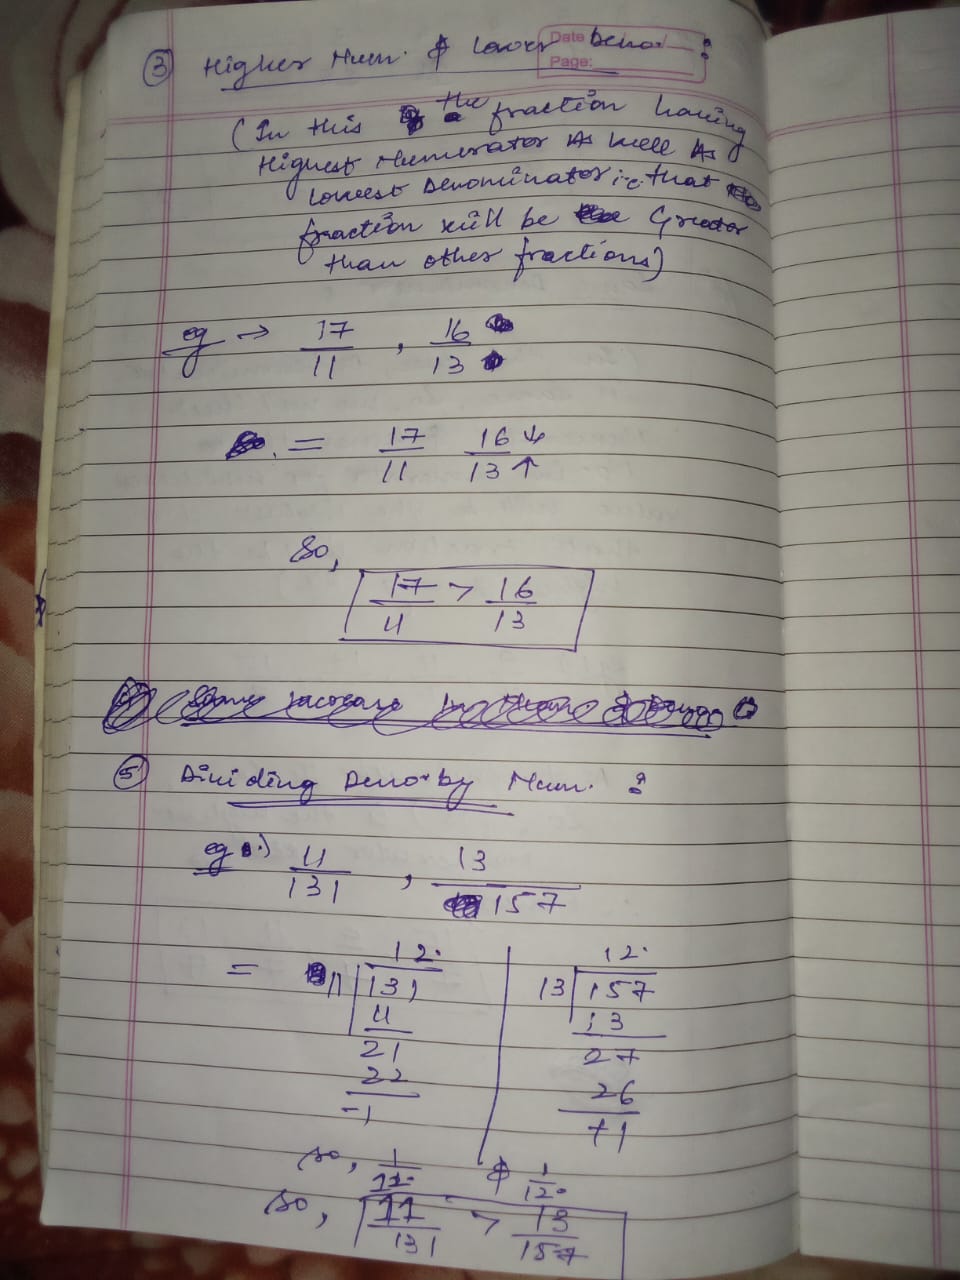 ③ Higher Num. & lower Deno. :
Date
Page:
(In this the fraction having
Highest Numerator As well As
lowest Denominator i.e. that
fraction will be Greater
than other fractions)
eg → 17/11 , 16/13
= 17/11 16↓/13↑
So,
17/11 > 16/13
⑤ Dividing Deno. by Num. :
eg .) 11/131 , 13/157
= 12. 12.
11 131 13 157
11 13
21 27
22 26
-1 +1
so, 1/12. & 1/12.
so, 11/131 > 13/157